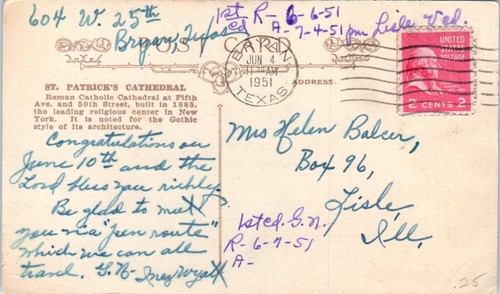 604 W. 25th
Bryan Texas
1st R- 6-6-51
A- 7-4-51 pm Lisle
POST CARD
BRYAN
JUN 4
11 AM
1951
TEXAS
UNITED
STATES
POSTAGE
2 CENTS 2
ADDRESS.
ST. PATRICK'S CATHEDRAL
Roman Catholic Cathedral at Fifth
Ave. and 50th Street, built in 1885,
the leading religious center in New
York. It is noted for the Gothic
style of its architecture.
Congratulations on
June 10th and the
Lord bless you richly.
Be glad to meet
you via "pen route"
which we can all
travel. G.N- Inez Wyatt
Miss Helen Balcer,
Box 96,
Lisle,
Ill,
1st cd. G.N.
R- 6-7-51
A-
.25